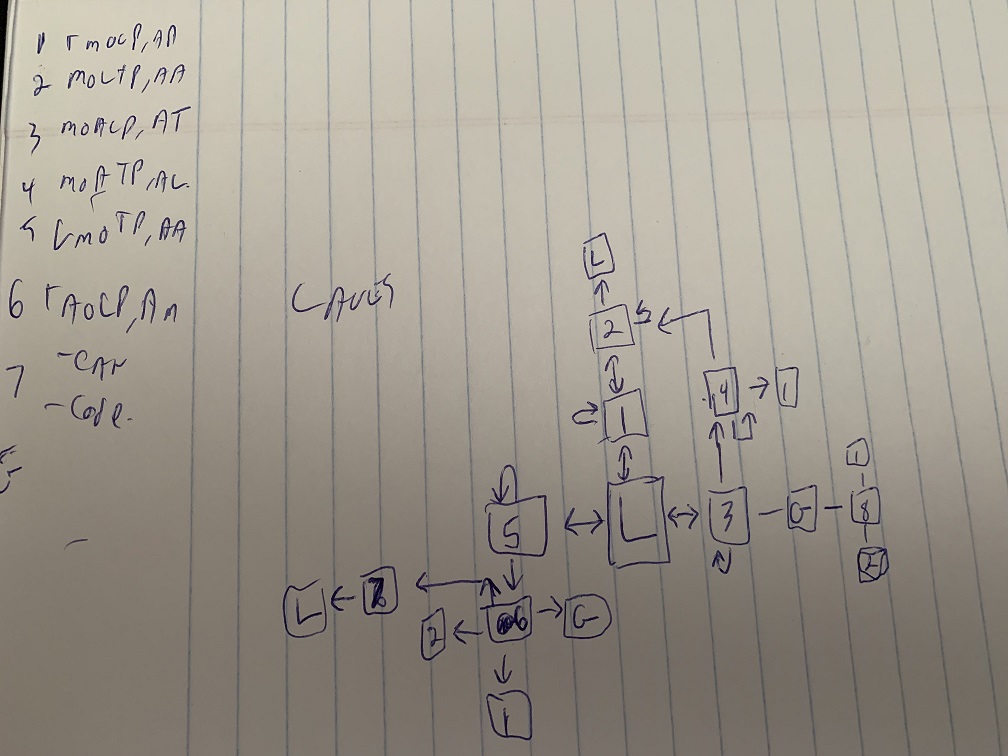 1 rmOCP, AA
2 MOLTP, AA
3 MOACP, AT
4 MOATP, AL
5 LMOTP, AA
6 rAOCP, Am
7 -CAN
-Code.
L
2
4
1
1
1
5
L
3
G
8
2
L
2
6
G
1